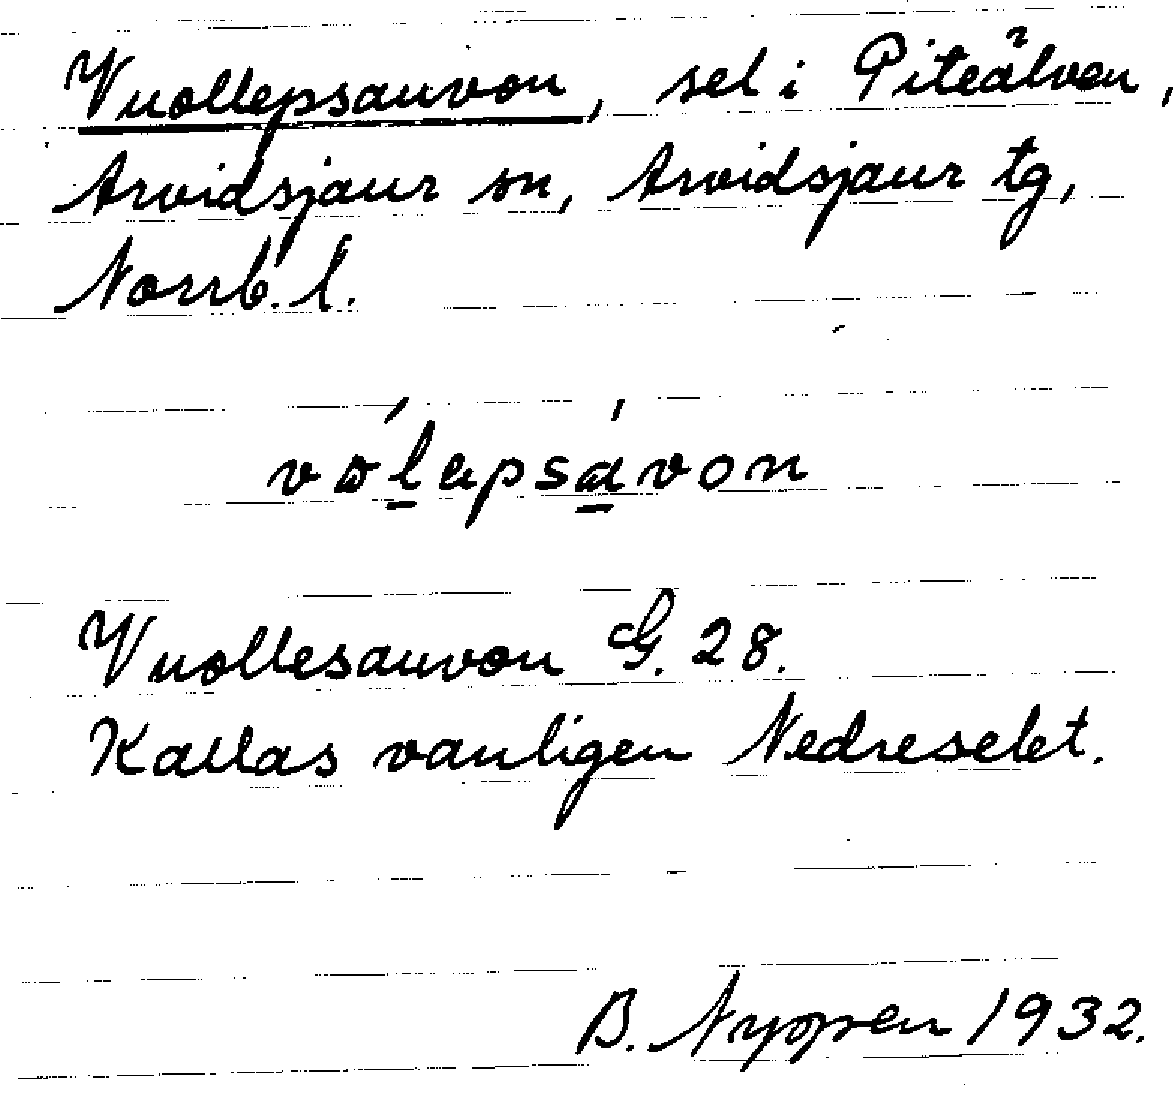 Vuollepsauvon, sel i Piteälven,
Arvidsjaur sn, Arvidsjaur tg,
Norrb. l.
Vuollesauvon G. 28.
Kallas vanligen Nedreselet.
B. Nyppen 1932.